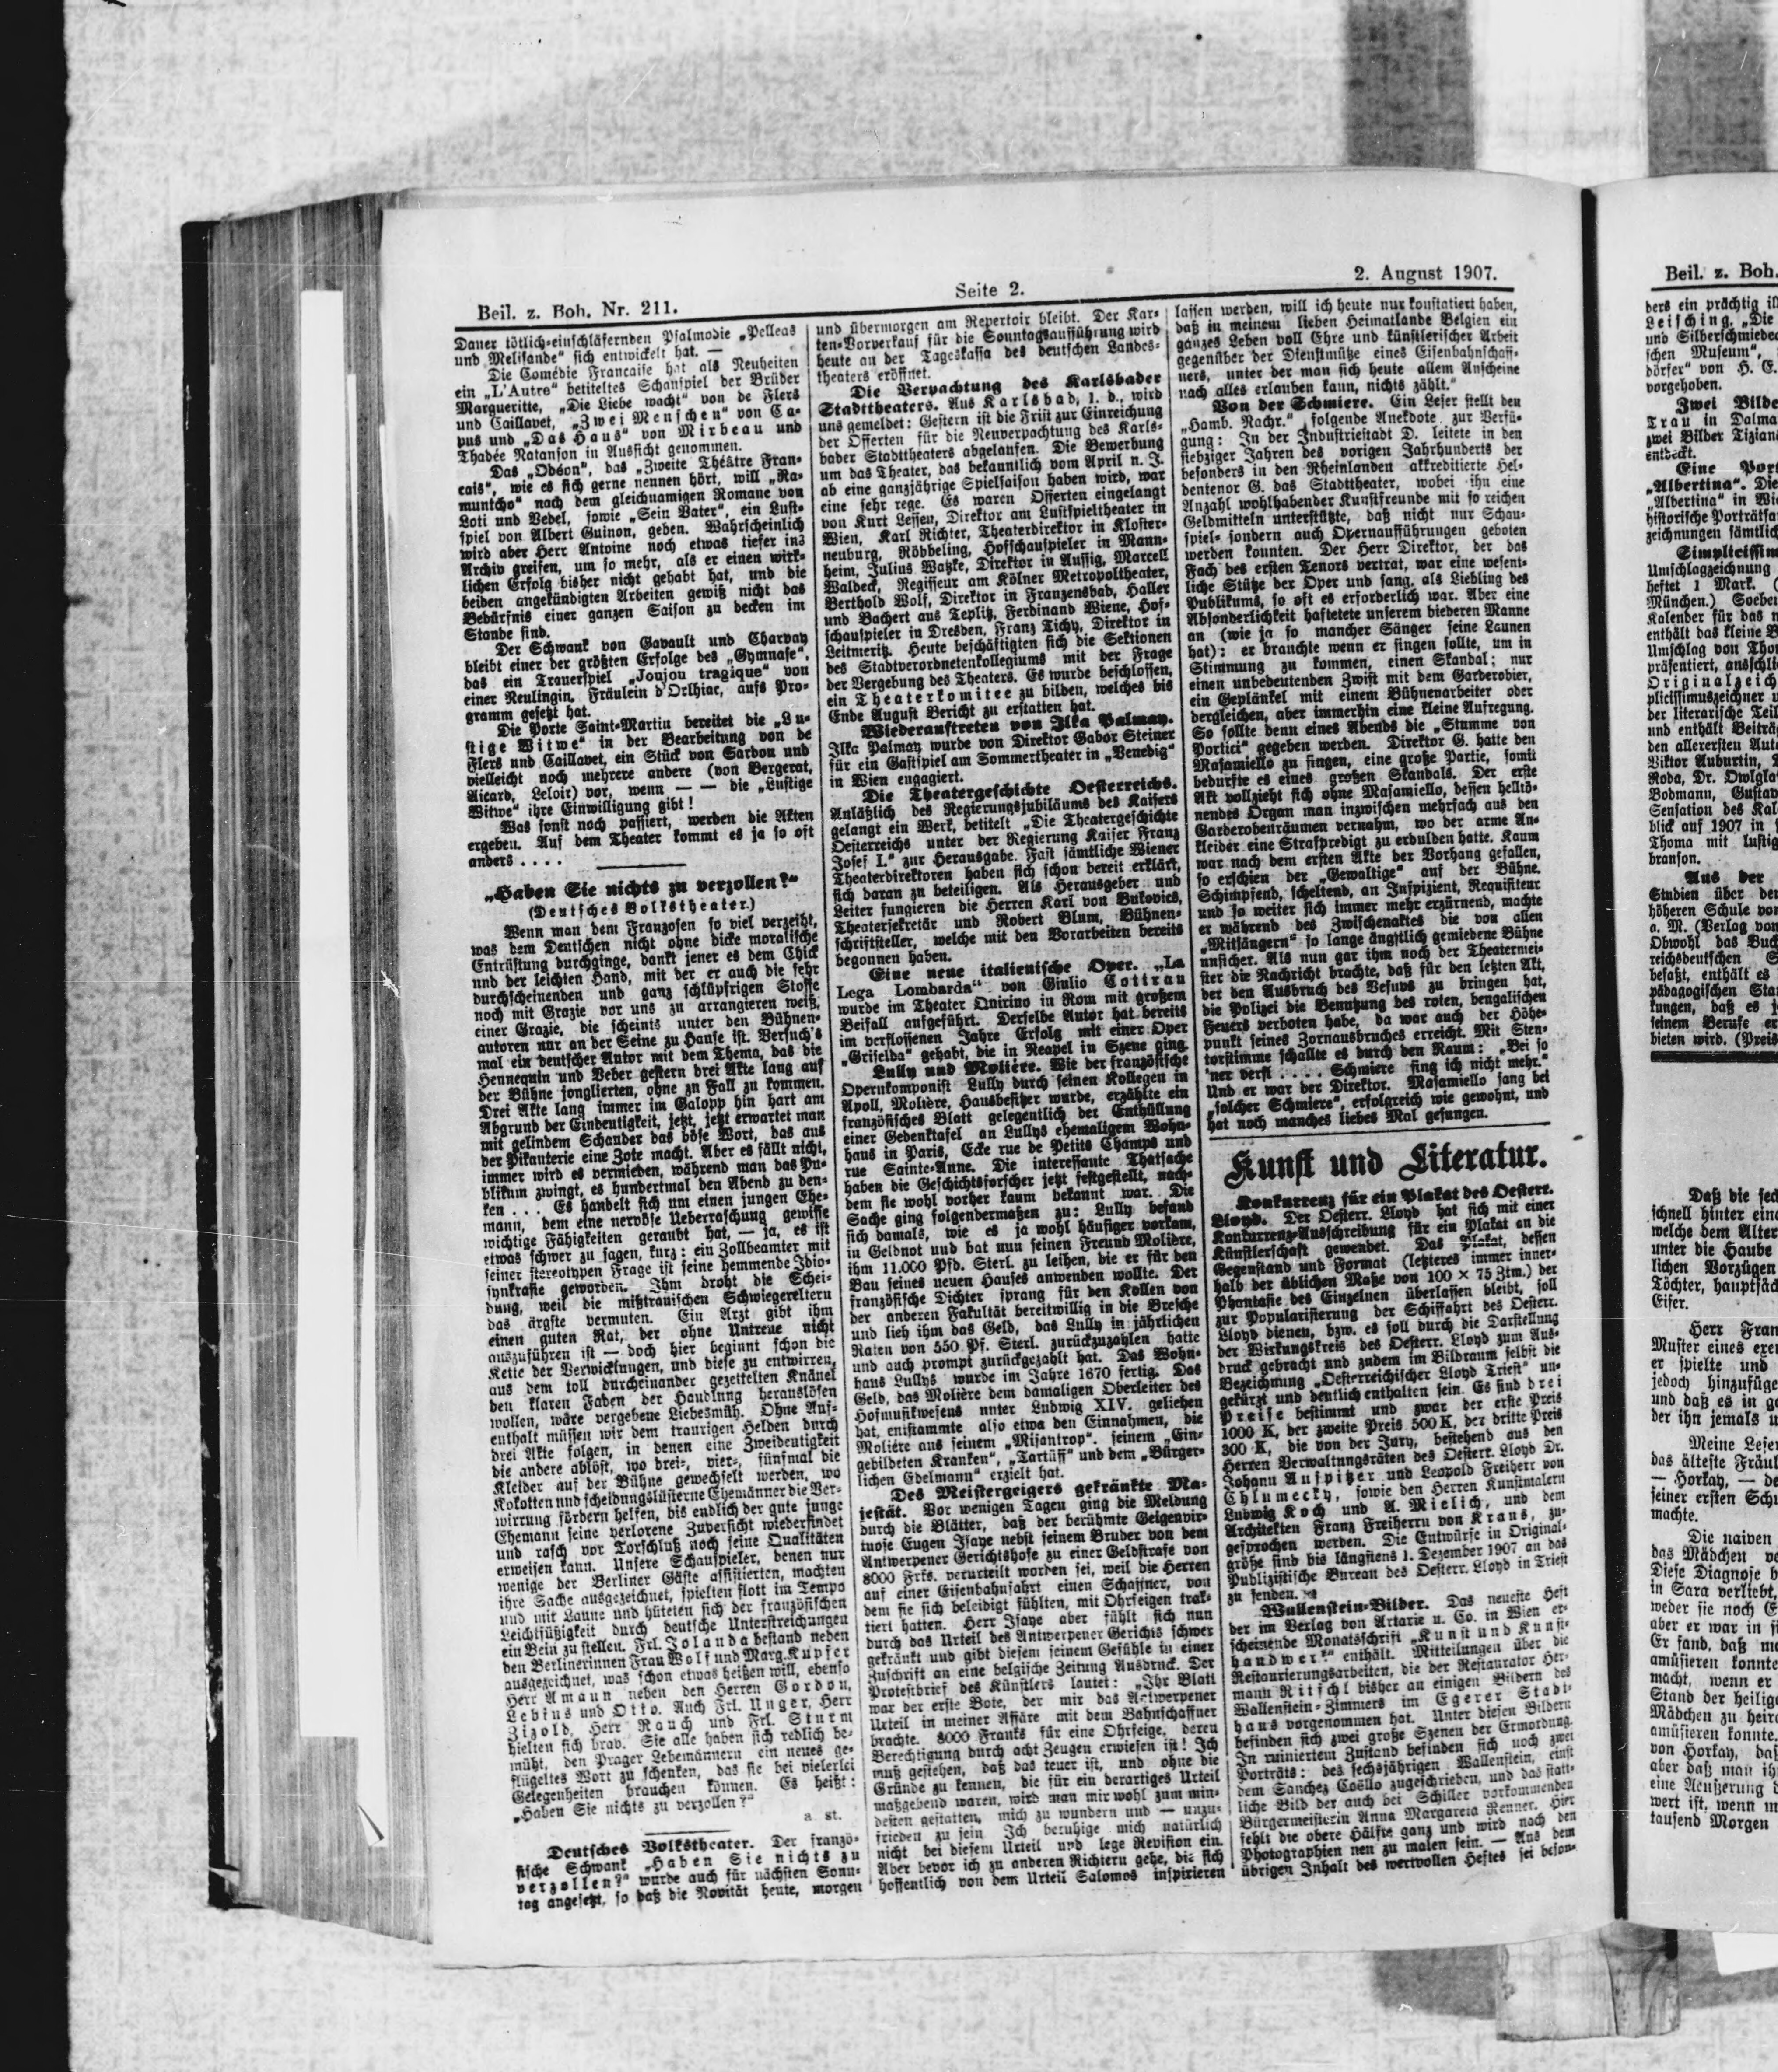 Beil. z. Boh. Nr. 211.
Seite 2.
2. August 1907.
Dauer tötlich-einschläfernden Psalmodie „Pelleas
und Melisande“ sich entwickelt hat. —
Die Comédie Francaise hat als Neuheiten
ein „L'Autre“ betiteltes Schauspiel der Brüder
Margueritte, „Die Liebe wacht“ von de Flers
und Caillavet, „Zwei Menschen“ von Ca-
pus und „Das Haus“ von Mirbeau und
Thadée Natanson in Aussicht genommen.
Das „Odéon“, das „Zweite Théâtre Fran-
cais“, wie es sich gerne nennen hört, will „Ra-
muntcho“ nach dem gleichnamigen Romane von
Loti und Vedel, sowie „Sein Vater“, ein Lust-
spiel von Albert Guinon, geben. Wahrscheinlich
wird aber Herr Antoine noch etwas tiefer ins
Archiv greifen, um so mehr, als er einen wirk-
lichen Erfolg bisher nicht gehabt hat, und die
beiden angekündigten Arbeiten gewiß nicht das
Bedürfnis einer ganzen Saison zu decken im
Stande sind.
Der Schwank von Gavault und Charvay
bleibt einer der größten Erfolge des „Gymnase“,
das ein Trauerspiel „Joujou tragique“ von
einer Neulingin, Fräulein d'Orlhiac, aufs Pro-
gramm gesetzt hat.
Die Porte Saint-Martin bereitet die „Lu-
stige Witwe“ in der Bearbeitung von de
Flers und Caillavet, ein Stück von Sardou und
vielleicht noch mehrere andere (von Bergerat,
Aicard, Leloir) vor, wenn — — die „Lustige
Witwe“ ihre Einwilligung gibt!
Was sonst noch passiert, werden die Akten
ergeben. Auf dem Theater kommt es ja so oft
anders . . . .
„Haben Sie nichts zu verzollen?“
(Deutsches Volkstheater.)
Wenn man dem Franzosen so viel verzeiht,
was dem Deutschen nicht ohne dicke moralische
Entrüstung durchginge, dankt jener es dem Chick
und der leichten Hand, mit der er auch die sehr
durchscheinenden und ganz schlüpfrigen Stoffe
noch mit Grazie vor uns zu arrangieren weiß,
einer Grazie, die scheints unter den Bühnen-
autoren nur an der Seine zu Hause ist. Versuch's
mal ein deutscher Autor mit dem Thema, das die
Hennequin und Veber gestern drei Akte lang auf
der Bühne jonglierten, ohne zu Fall zu kommen.
Drei Akte lang immer im Galopp hin hart am
Abgrund der Eindeutigkeit, jetzt, jetzt erwartet man
mit gelindem Schauder das böse Wort, das aus
der Pikanterie eine Zote macht. Aber es fällt nicht,
immer wird es vermieden, während man das Pu-
blikum zwingt, es hundertmal den Abend zu den-
ken . . . Es handelt sich um einen jungen Ehe-
mann, dem eine nervöse Ueberraschung gewisse
wichtige Fähigkeiten geraubt hat, — ja, es ist
etwas schwer zu sagen, kurz: ein Zollbeamter mit
seiner stereotypen Frage ist seine hemmende Idio-
synkrasie geworden. Ihm droht die Schei-
dung, weil die mißtrauischen Schwiegereltern
das ärgste vermuten. Ein Arzt gibt ihm
einen guten Rat, der ohne Untreue nicht
auszuführen ist — doch hier beginnt schon die
Kette der Verwicklungen, und diese zu entwirren,
aus dem toll durcheinander gezettelten Knäuel
den klaren Faden der Handlung herauslösen
wollen, wäre vergebene Liebesmüh. Ohne Auf-
enthalt müssen wir dem traurigen Helden durch
drei Akte folgen, in denen eine Zweideutigkeit
die andere ablöst, wo drei-, vier-, fünfmal die
Kleider auf der Bühne gewechselt werden, wo
Kokotten und scheidungslüsterne Ehemänner die Ver-
wirrung fördern helfen, bis endlich der gute junge
Ehemann seine verlorene Zuversicht wiederfindet
und rasch vor Torschluß noch seine Qualitäten
erweisen kann. Unsere Schauspieler, denen nur
wenige der Berliner Gäste assistierten, machten
ihre Sache ausgezeichnet, spielten flott im Tempo
und mit Laune und hüteten sich der französischen
Leichtfüßigkeit durch deutsche Unterstreichungen
ein Bein zu stellen. Frl. Jolanda bestand neben
den Berlinerinnen Frau Wolf und Marg. Kupfer
ausgezeichnet, was schon etwas heißen will, ebenso
Herr Amann neben den Herren Gordon,
Lebius und Otto. Auch Frl. Unger, Herr
Zizold, Herr Rauch und Frl. Sturm
hielten sich brav. Sie alle haben sich redlich be-
müht, den Prager Lebemännern ein neues ge-
flügeltes Wort zu schenken, das sie bei vielerlei
Gelegenheiten brauchen können. Es heißt:
„Haben Sie nichts zu verzollen?“
a. st.
Deutsches Volkstheater. Der franzö-
sische Schwank „Haben Sie nichts zu
verzollen?“ wurde auch für nächsten Sonn-
tag angesetzt, so daß die Novität heute, morgen
und übermorgen am Repertoir bleibt. Der Kar-
ten-Vorverkauf für die Sonntagsaufführung wird
heute an der Tageskassa des deutschen Landes-
theaters eröffnet.
Die Verpachtung des Karlsbader
Stadttheaters. Aus Karlsbad, 1. d., wird
uns gemeldet: Gestern ist die Frist zur Einreichung
der Offerten für die Neuverpachtung des Karls-
bader Stadttheaters abgelaufen. Die Bewerbung
um das Theater, das bekanntlich vom April n. J.
ab eine ganzjährige Spielsaison haben wird, war
eine sehr rege. Es waren Offerten eingelangt
von Kurt Lessen, Direktor am Lustspieltheater in
Wien, Karl Richter, Theaterdirektor in Kloster-
neuburg, Röbbeling, Hofschauspieler in Mann-
heim, Julius Watzke, Direktor in Aussig, Marcell
Waldeck, Regisseur am Kölner Metropoltheater,
Berthold Wolf, Direktor in Franzensbad, Haller
und Bachert aus Teplitz, Ferdinand Wiene, Hof-
schauspieler in Dresden, Franz Tichy, Direktor in
Leitmeritz. Heute beschäftigten sich die Sektionen
des Stadtverordnetenkollegiums mit der Frage
der Vergebung des Theaters. Es wurde beschlossen,
ein Theaterkomitee zu bilden, welches bis
Ende August Bericht zu erstatten hat.
Wiederauftreten von Ilka Palmay.
Ilka Palmay wurde von Direktor Gabor Steiner
für ein Gastspiel am Sommertheater in „Venedig“
in Wien engagiert.
Die Theatergeschichte Oesterreichs.
Anläßlich des Regierungsjubiläums des Kaisers
gelangt ein Werk, betitelt „Die Theatergeschichte
Oesterreichs unter der Regierung Kaiser Franz
Josef I.“ zur Herausgabe. Fast sämtliche Wiener
Theaterdirektoren haben sich schon bereit erklärt,
sich daran zu beteiligen. Als Herausgeber und
Leiter fungieren die Herren Karl von Bukovics,
Theatersekretär und Robert Blum, Bühnen-
schriftsteller, welche mit den Vorarbeiten bereits
begonnen haben.
Eine neue italienische Oper. „La
Lega Lombarda“ von Giulio Cottrau
wurde im Theater Quirino in Rom mit großem
Beifall aufgeführt. Derselbe Autor hat bereits
im verflossenen Jahre Erfolg mit einer Oper
„Griselda“ gehabt, die in Neapel in Szene ging.
Lully und Molière. Wie der französische
Opernkomponist Lully durch seinen Kollegen in
Apoll, Molière, Hausbesitzer wurde, erzählte ein
französisches Blatt gelegentlich der Enthüllung
einer Gedenktafel an Lullys ehemaligem Wohn-
haus in Paris, Ecke rue de Petits Champs und
rue Sainte-Anne. Die interessante Thatsache
haben die Geschichtsforscher jetzt festgestellt, nach-
dem sie wohl vorher kaum bekannt war. Die
Sache ging folgendermaßen zu: Lully befand
sich damals, wie es ja wohl häufiger vorkam,
in Geldnot und bat nun seinen Freund Molière,
ihm 11.000 Pfd. Sterl. zu leihen, die er für den
Bau seines neuen Hauses anwenden wollte. Der
französische Dichter sprang für den Kollen von
der anderen Fakultät bereitwillig in die Bresche
und lieh ihm das Geld, das Lully in jährlichen
Raten von 550 Pf. Sterl. zurückzuzahlen hatte
und auch prompt zurückgezahlt hat. Das Wohn-
haus Lullys wurde im Jahre 1670 fertig. Das
Geld, das Molière dem damaligen Oberleiter des
Hofmusikwesens unter Ludwig XIV. geliehen
hat, entstammte also etwa den Einnahmen, die
Molière aus seinem „Misantrop“, seinem „Ein-
gebildeten Kranken“, „Tartüff“ und dem „Bürger-
lichen Edelmann“ erzielt hat.
Des Meistergeigers gekränkte Ma-
jestät. Vor wenigen Tagen ging die Meldung
durch die Blätter, daß der berühmte Geigenvir-
tuose Eugen Isaye nebst seinem Bruder von dem
Antwerpener Gerichtshofe zu einer Geldstrafe von
8000 Frks. verurteilt worden sei, weil die Herren
auf einer Eisenbahnfahrt einen Schaffner, von
dem sie sich beleidigt fühlten, mit Ohrfeigen trak-
tiert hatten. Herr Isaye aber fühlt sich nun
durch das Urteil des Antwerpener Gerichts schwer
gekränkt und gibt diesem seinem Gefühle in einer
Zuschrift an eine belgische Zeitung Ausdruck. Der
Protestbrief des Künstlers lautet: „Ihr Blatt
war der erste Bote, der mir das Antwerpener
Urteil in meiner Affäre mit dem Bahnschaffner
brachte. 8000 Franks für eine Ohrfeige, deren
Berechtigung durch acht Zeugen erwiesen ist! Ich
muß gestehen, daß das teuer ist, und ohne die
Gründe zu kennen, die für ein derartiges Urteil
maßgebend waren, wird man mir wohl zum min-
desten gestatten, mich zu wundern und — unzu-
frieden zu sein. Ich beruhige mich natürlich
nicht bei diesem Urteil und lege Revision ein.
Aber bevor ich zu anderen Richtern gehe, die sich
hoffentlich von dem Urteil Salomos inspirieren
lassen werden, will ich heute nur konstatiert haben,
daß in meinem lieben Heimatlande Belgien ein
ganzes Leben voll Ehre und künstlerischer Arbeit
gegenüber der Dienstmütze eines Eisenbahnschaff-
ners, unter der man sich heute allem Anscheine
nach alles erlauben kann, nichts zählt.“
Von der Schmiere. Ein Leser stellt den
„Hamb. Nachr.“ folgende Anekdote zur Verfü-
gung: In der Industriestadt D. leitete in den
siebziger Jahren des vorigen Jahrhunderts der
besonders in den Rheinlanden akkreditierte Hel-
dentenor G. das Stadttheater, wobei ihn eine
Anzahl wohlhabender Kunstfreunde mit so reichen
Geldmitteln unterstützte, daß nicht nur Schau-
spiel- sondern auch Opernaufführungen geboten
werden konnten. Der Herr Direktor, der das
Fach des ersten Tenors vertrat, war eine wesent-
liche Stütze der Oper und sang, als Liebling des
Publikums, so oft es erforderlich war. Aber eine
Absonderlichkeit haftetete unserem biederen Manne
an (wie ja so mancher Sänger seine Launen
hat): er brauchte wenn er singen sollte, um in
Stimmung zu kommen, einen Skandal; nur
einen unbedeutenden Zwist mit dem Garderobier,
ein Geplänkel mit einem Bühnenarbeiter oder
dergleichen, aber immerhin eine kleine Aufregung.
So sollte denn eines Abends die „Stumme von
Portici“ gegeben werden. Direktor G. hatte den
Masaniello zu singen, eine große Partie, somit
bedurfte es eines großen Skandals. Der erste
Akt vollzieht sich ohne Masaniello, dessen helltö-
nendes Organ man inzwischen mehrfach aus den
Garderobenräumen vernahm, wo der arme An-
kleider eine Strafpredigt zu erdulden hatte. Kaum
war nach dem ersten Akte der Vorhang gefallen,
so erschien der „Gewaltige“ auf der Bühne.
Schimpfend, scheltend, an Inspizient, Requisiteur
und so weiter sich immer mehr erzürnend, machte
er während des Zwischenaktes die von allen
„Mitsängern“ so lange ängstlich gemiedene Bühne
unsicher. Als nun gar ihm noch der Theatermei-
ster die Nachricht brachte, daß für den letzten Akt,
der den Ausbruch des Vesuvs zu bringen hat,
die Polizei die Benutzung des roten, bengalischen
Feuers verboten habe, da war auch der Höhe-
punkt seines Zornausbruches erreicht. Mit Sten-
torstimme schallte es durch den Raum: „Bei so
'ner verfl . . . . Schmiere sing ich nicht mehr.“
Und er war der Direktor. Masaniello sang bei
„solcher Schmiere“, erfolgreich wie gewohnt, und
hat noch manches liebes Mal gesungen.
Kunst und Literatur.
Konkurrenz für ein Plakat des Oesterr.
Lloyd. Der Oesterr. Lloyd hat sich mit einer
Konkurrenz-Ausschreibung für ein Plakat an die
Künstlerschaft gewendet. Das Plakat, dessen
Gegenstand und Format (letzteres immer inner-
halb der üblichen Maße von 100 × 75 Ztm.) der
Phantasie des Einzelnen überlassen bleibt, soll
zur Popularisierung der Schiffahrt des Oesterr.
Lloyd dienen, bzw. es soll durch die Darstellung
der Wirkungskreis des Oesterr. Lloyd zum Aus-
druck gebracht und zudem im Bildraum selbst die
Bezeichnung „Oesterreichischer Lloyd Triest“ un-
gekürzt und deutlich enthalten sein. Es sind drei
Preise bestimmt und zwar der erste Preis
1000 K, der zweite Preis 500 K, der dritte Preis
300 K, die von der Jury, bestehend aus den
Herren Verwaltungsräten des Oesterr. Lloyd Dr.
Johann Auspitzer und Leopold Freiherr von
Chlumecky, sowie den Herren Kunstmalern
Ludwig Koch und A. Mielich, und dem
Architekten Franz Freiherrn von Kraus, zu-
gesprochen werden. Die Entwürfe in Original-
größe sind bis längstens 1. Dezember 1907 an das
Publizistische Bureau des Oesterr. Lloyd in Triest
zu senden.
Wallenstein-Bilder. Das neueste Heft
der im Verlag von Artarie u. Co. in Wien er-
scheinende Monatsschrift „Kunst und Kunst-
handwerk“ enthält. Mitteilungen über die
Restaurierungsarbeiten, die der Restaurator Her-
mann Ritschl bisher an einigen Bildern des
Wallenstein-Zimmers im Egerer Stadt-
haus vorgenommen hat. Unter diesen Bildern
befinden sich zwei große Szenen der Ermordung.
In ruiniertem Zustand befinden sich noch zwei
Porträts: des sechsjährigen Wallenstein, einst
dem Sanchez Coëllo zugeschrieben, und das statt-
liche Bild der auch bei Schiller vorkommenden
Bürgermeisterin Anna Margareta Renner. Hier
fehlt die obere Hälfte ganz und wird nach den
Photographien neu zu malen sein. — Aus dem
übrigen Inhalt des wertvollen Heftes sei beson-
Beil. z. Boh.
ders ein prächtig
Leisching, „Die
und Silberschmiede
schen Museum“,
dörfer“ von H. E.
vorgehoben.
Zwei Bilde
Trau in Dalma
zwei Bilder Tizian
entdeckt.
Eine Port
„Albertina“. Die
„Albertina“ in Wi
historische Porträtsa
zeichnungen sämtlich
Simplicissim
Umschlagzeichnung
heftet 1 Mark. (
München.) Soebe
Kalender für das
enthält das kleine B
Umschlag von Tho
präsentiert, ausschli
Originalzeich
plicissimuszeichner
der literarische Teil
und enthält Beiträ
den allerersten Aut
Viktor Auburtin,
Roda, Dr. Owlgla
Bodmann, Gustav
Sensation des Kal
blick auf 1907 in
Thoma mit lustig
branson.
Aus der
Studien über de
höheren Schule vo
a. M. (Verlag von
Obwohl das Buch
reichsdeutschen
befaßt, enthält es
pädagogischen Sta
kungen, daß es
seinem Berufe er
bieten wird. (Preis
Daß die sech
schnell hinter eina
welche dem Alter
unter die Haube
lichen Vorzügen
Töchter, hauptsäch
Eifer.
Herr Fran
Muster eines exe
er spielte und
jedoch hinzufüge
und daß es in g
der ihn jemals
Meine Leser
das älteste Fräul
— Horkay, — de
seiner ersten Sch
machte.
Die naiven
das Mädchen
Diese Diagnose b
in Sara verliebt,
weder sie noch E
aber er war in
Er fand, daß m
amüsieren konnte
macht, wenn er
Stand der heilige
Mädchen zu heir
amüsieren konnte.
von Horkay, daß
aber daß man ih
eine Aeußerung
wert ist, wenn m
tausend Morgen